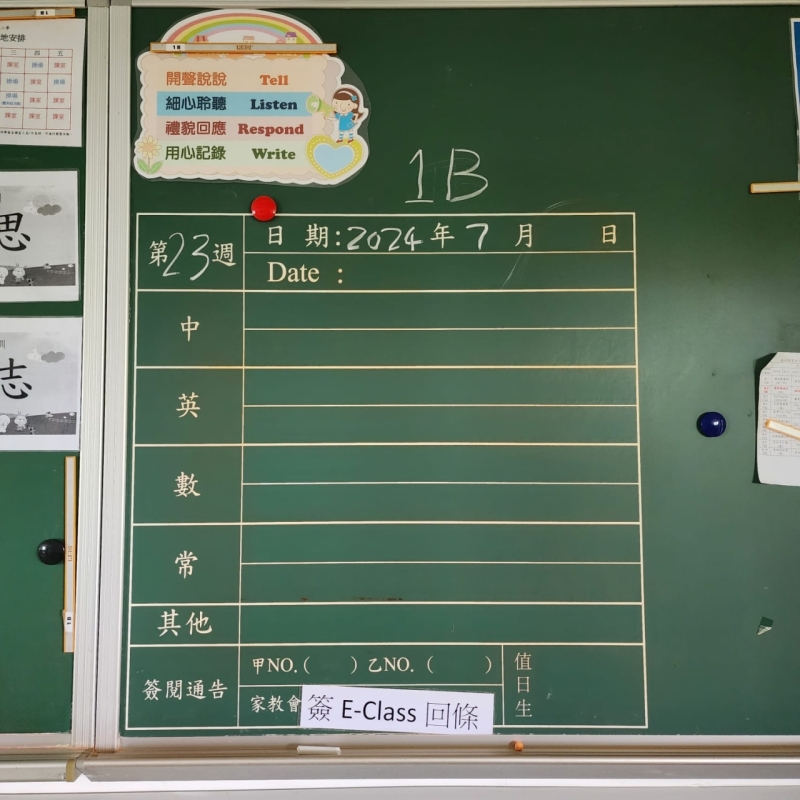 1B
地安排
三 四 五
開聲說說 Tell
細心聆聽 Listen
禮貌回應 Respond
用心記錄 Write
1B
思
志
第23週
日 期:2024年 7 月 日
Date :
中
英
數
常
其他
簽閱通告
甲NO.( )乙NO. ( )
家教會
簽 E-Class 回條
值日生